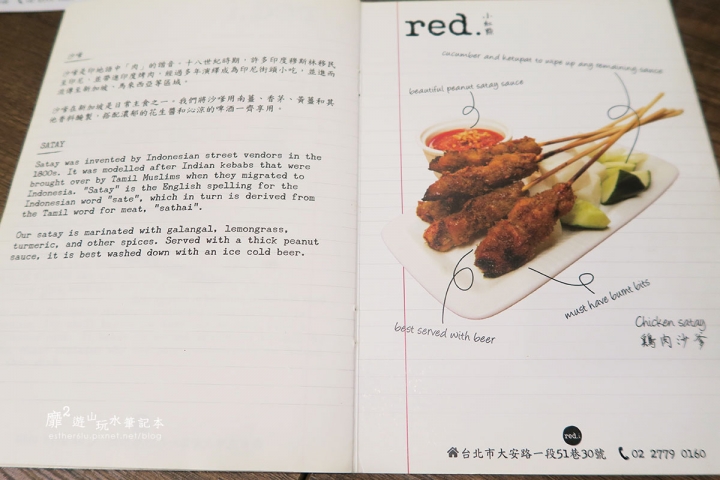 沙嗲
沙嗲是印地語中「肉」的諧音，十八世紀時期，許多印度穆斯林移民
至印尼，並帶進印度烤肉，經過多年演釋成為印尼街頭小吃，並進而
流傳至新加坡、馬來西亞等區域。
沙嗲在新加坡是日常主食之一，我們將沙嗲用南薑、香茅、黃薑和其
他香料醃製，搭配濃郁的花生醬和沁涼的啤酒一齊享用。
SATAY
Satay was invented by Indonesian street vendors in the
1800s. It was modelled after Indian kebabs that were
brought over by Tamil Muslims when they migrated to
Indonesia. "Satay" is the English spelling for the
Indonesian word "sate", which in turn is derived from
the Tamil word for meat, "sathai".
Our satay is marinated with galangal, lemongrass,
turmeric, and other spices. Served with a thick peanut
sauce, it is best washed down with an ice cold beer.
靡²遊山玩水筆記本
estherslu.pixnet.net/blog
red.
小紅點
cucumber and ketupat to wipe up any remaining sauce
beautiful peanut satay sauce
must have burnt bits
best served with beer
Chicken satay
雞肉沙爹
red.
台北市大安路一段51巷30號 02 2779 0160